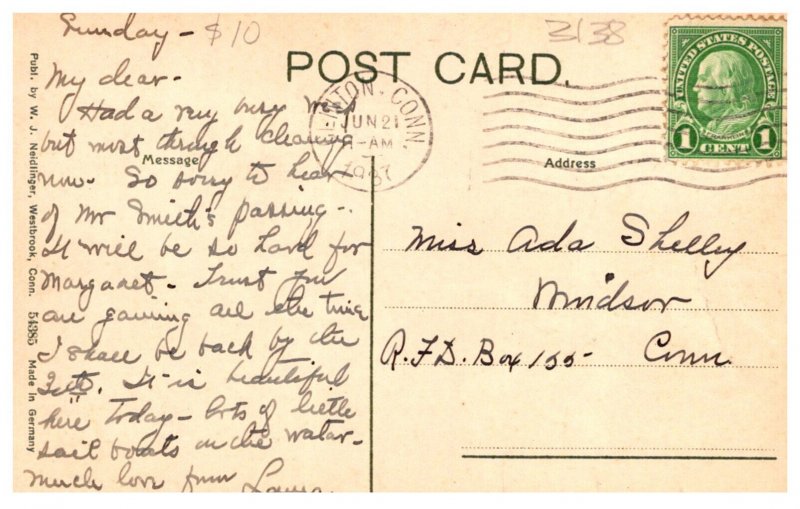 Sunday - $10
3138
POST CARD.
My dear -
Had a very busy week
but most through cleaning
Message
now. So sorry to hear
of Mr Smith's passing -
It will be so hard for
Margaret - Trust you
are gaining all the time
I shall be back by the
It is beautiful
here today - lots of little
sail boats on the water -
much love from
Publ. by W. J. Neidlinger, Westbrook, Conn. 54385 Made in Germany
TON, CONN.
JUN 21
-AM
UNITED STATES POSTAGE
FRANKLIN
1 CENT 1
Address
Miss Ada Shelley
Windsor
R.F.D. Box 155- Conn